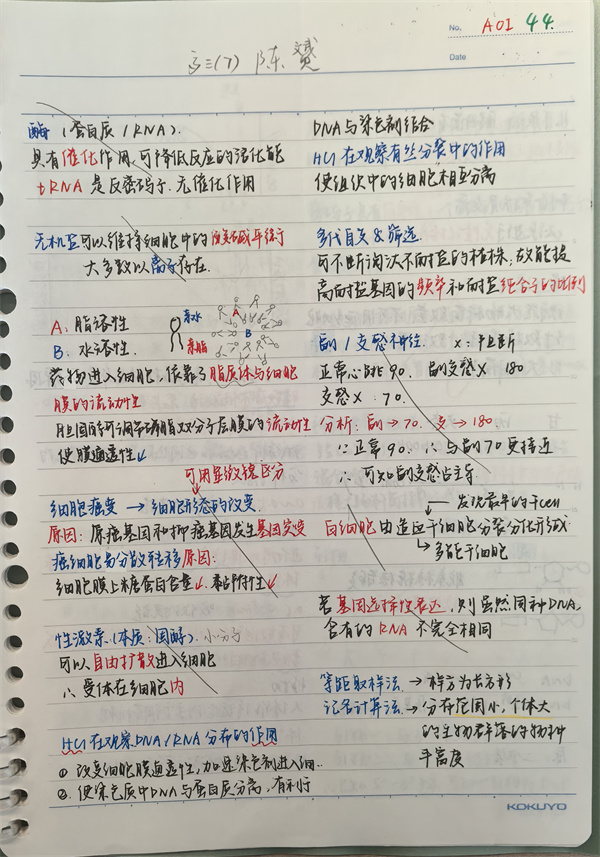 No. A01 44.
Date
高三(7) 陈
酶 (蛋白质 / RNA).
具有催化作用,可降低反应的活化能
tRNA 是反密码子,无催化作用
无机盐可以维持细胞中的酸碱平衡
大多数以离子存在.
A: 脂溶性
B: 水溶性.
亲水
亲脂
A
B
药物进入细胞,依靠了脂质体与细胞
膜的流动性
胆固醇可调节磷脂双分子层膜的流动性
使膜通透性↓
可用显微镜区分
细胞癌变 → 细胞形态的改变.
原因: 原癌基因和抑癌基因发生基因突变
癌细胞易分散转移原因:
细胞膜上糖蛋白含量↓. 黏附性↓
性激素.(本质: 固醇). 小分子
可以自由扩散进入细胞
∴ 受体在细胞内
HCl 在观察DNA/RNA分布的作用
① 改变细胞膜通透性,加速染色剂进入细..
②. 使染色质中DNA与蛋白质分离,有利于
DNA与染色剂结合
HCl 在观察有丝分裂中的作用
使组织中的细胞相互分离
多代自交 & 筛选.
可不断淘汰不耐盐的植株,故能提
高耐盐基因的频率和耐盐纯合子的比例
副 / 交感神经. x: 阻断
正常心跳 90. 副交感 x 180
交感 x: 70.
分析: 副→70. 交→180
∵ 正常 90. ∴ 与副 70 更接近
∴ 可知副交感占主导.
发育最早的干cell
白细胞由造血干细胞分裂分化形成
多能干细胞
若基因选择性表达,则虽然同种DNA,
含有的 RNA 不完全相同
等距取样法. → 样方为长方形
记名计算法. → 分布范围小,个体大
的生物群落的物种
丰富度
KOKUYO